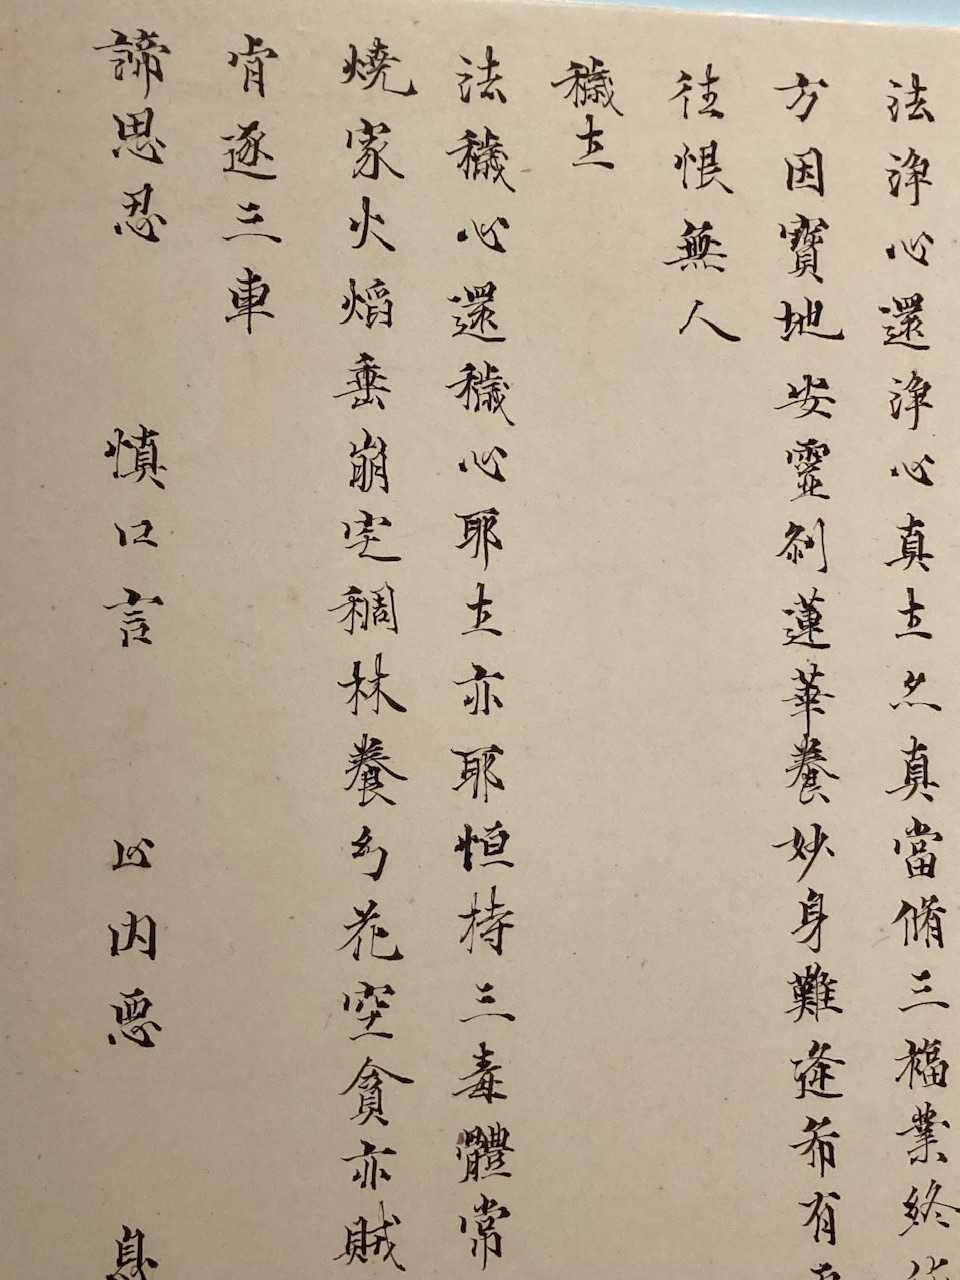 法淨心還淨心真土亦真當脩三福業終
方因寶地安靈刹蓮華養妙身難逢希有
往恨無人
穢土
法穢心還穢心耶土亦耶恒持三毒體常
燒家火焰垂崩宅稠林養幻花空貪亦賊
肯逐三車
諦思忍 慎口言 止内惡 息